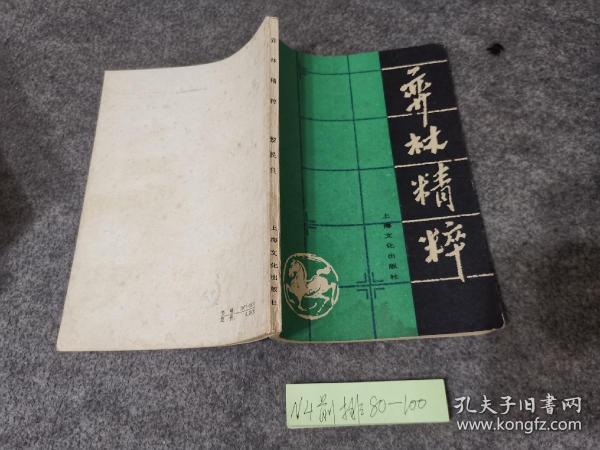 弈林精粹
上海文化出版社
弈林精粹
上海文化出版社
N4前排80—100
孔夫子旧书网
www.kongfz.com